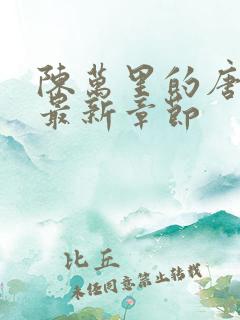 陳萬里的唐
最新章節
比丘
未经同意禁止转载